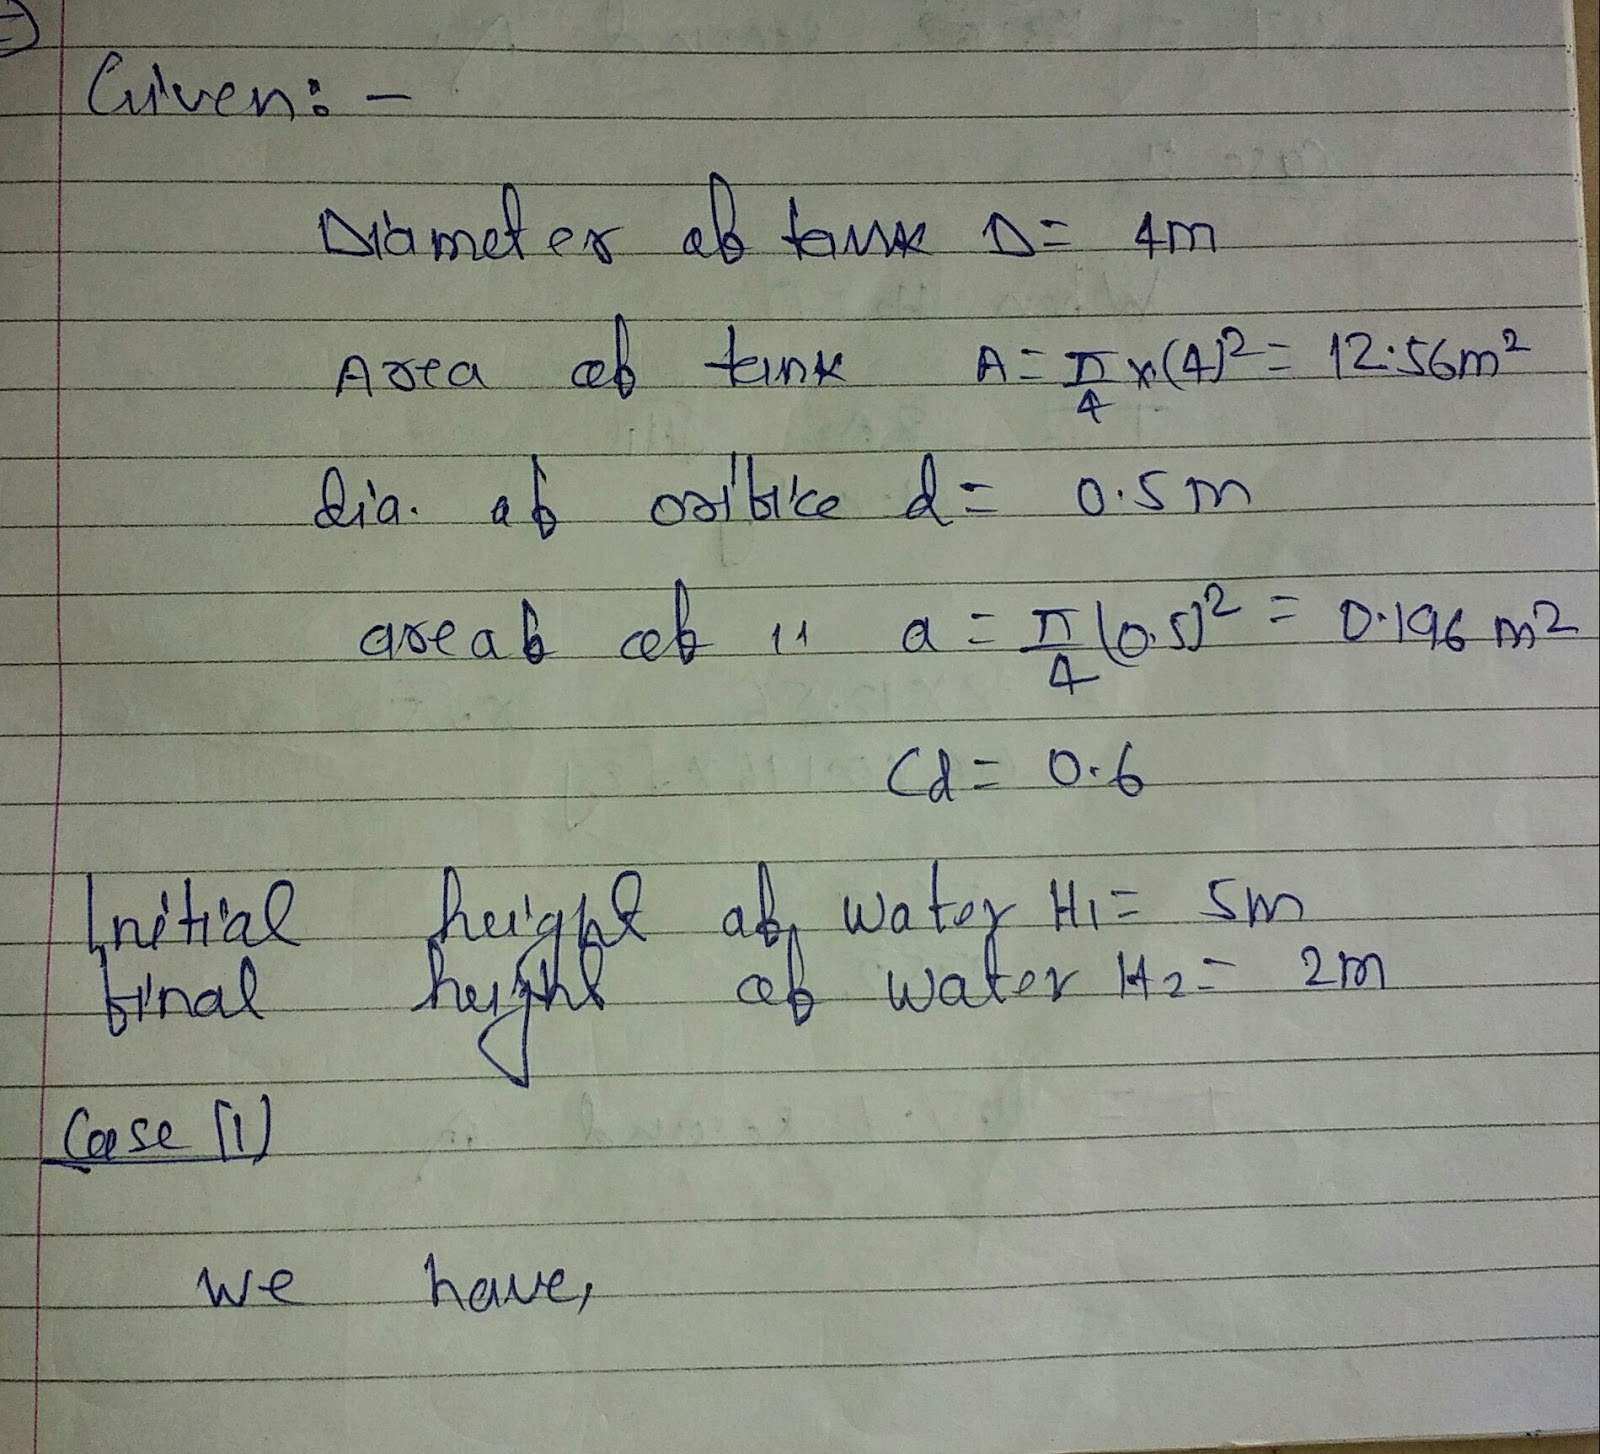 Given: -
Diameter of tank D = 4m
Area of tank A = π/4 x (4)² = 12.56m²
dia. of orifice d = 0.5m
area of of 11 a = π/4 (0.5)² = 0.196 m²
Cd = 0.6
Initial height of water H1 = 5m
final height of water H2 = 2m
Case (1)
we have,